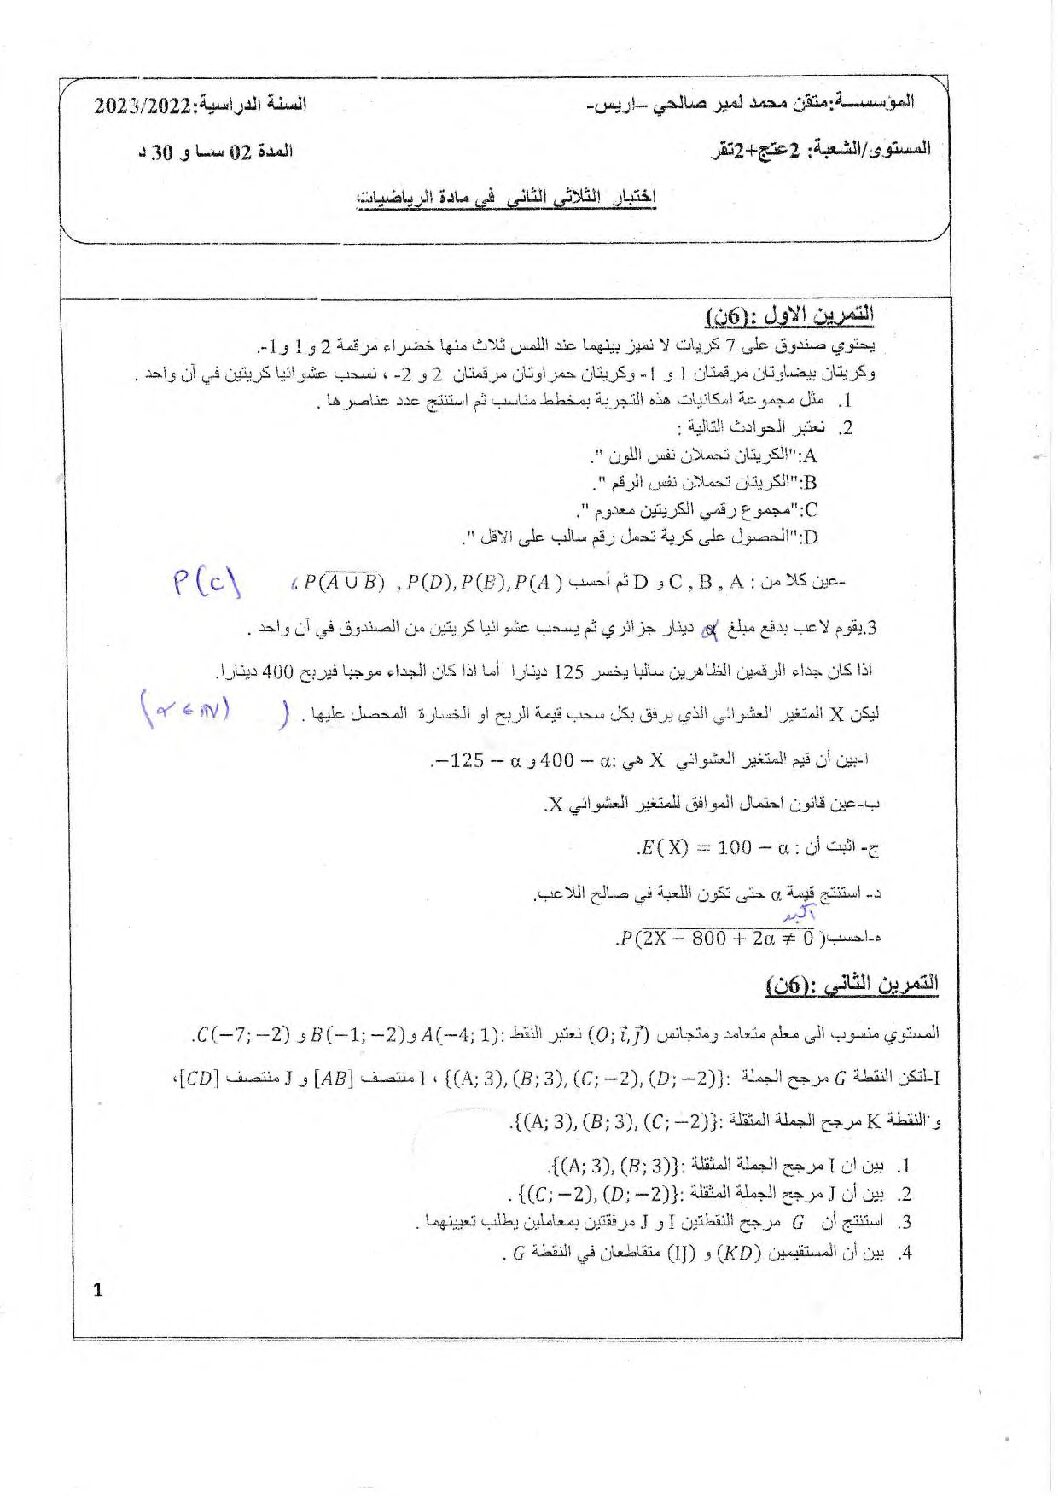 المؤسســة:متقن محمد لمير صالحي –اريس-
السنة الدراسية:2023/2022
المستوى/الشعبة: 2عتج+2تقر
المدة 02 سا و 30 د
اختبار الثلاثي الثاني في مادة الرياضيات
التمرين الاول :(6ن)
يحتوي صندوق على 7 كريات لا نميز بينهما عند اللمس ثلاث منها خضراء مرقمة 2 و 1 و1-.
وكريتان بيضاوتان مرقمتان 1 و 1- وكريتان حمراوتان مرقمتان 2 و 2- ، نسحب عشوائيا كريتين في آن واحد .
1. مثل مجموعة امكانيات هذه التجربة بمخطط مناسب ثم استنتج عدد عناصرها .
2. نعتبر الحوادث التالية :
A:"الكريتان تحملان نفس اللون ".
B:"الكريتان تحملان نفس الرقم ".
C:"مجموع رقمي الكريتين معدوم ".
D:"الحصول على كرية تحمل رقم سالب على الاقل ".
-عين كلا من : C , B , A و D ثم أحسب P(A) ,P(B) ,P(D) , P(\overline{A ∪ B}) ، P(C)
3.يقوم لاعب بدفع مبلغ α دينار جزائري ثم يسحب عشوائيا كريتين من الصندوق في آن واحد .
اذا كان جداء الرقمين الظاهرين سالبا يخسر 125 دينارا أما اذا كان الجداء موجبا فيربح 400 دينارا.
ليكن X المتغير العشوائي الذي يرفق بكل سحب قيمة الربح او الخسارة المحصل عليها . ) (α ∈ ℕ)
ا-بين أن قيم المتغير العشوائي X هي :400 − α و −125 − α.
ب-عين قانون احتمال الموافق للمتغير العشوائي X.
ج- اثبت أن : E(X) = 100 − α.
د- استنتج قيمة α حتى تكون اللعبة في صالح اللاعب.
أكبر
ه-احسب P(\overline{2X − 800 + 2α ≠ 0}).
التمرين الثاني :(6ن)
المستوي منسوب الى معلم متعامد ومتجانس (O; i⃗, j⃗) نعتبر النقط :A(−4; 1) وB(−1; −2) و C(−7; −2).
I-لتكن النقطة G مرجح الجملة :{(A; 3), (B; 3), (C; −2), (D; −2)} ، I منتصف [AB] و J منتصف [CD]،
و النقطة K مرجح الجملة المثقلة :{(A; 3), (B; 3), (C; −2)}.
1. بين ان I مرجح الجملة المثقلة :{(A; 3), (B; 3)}.
2. بين أن J مرجح الجملة المثقلة :{(C; −2), (D; −2)} .
3. استنتج أن G مرجح النقطتين I و J مرفقتين بمعاملين يطلب تعيينهما .
4. بين أن المستقيمين (KD) و (IJ) متقاطعان في النقطة G .
1